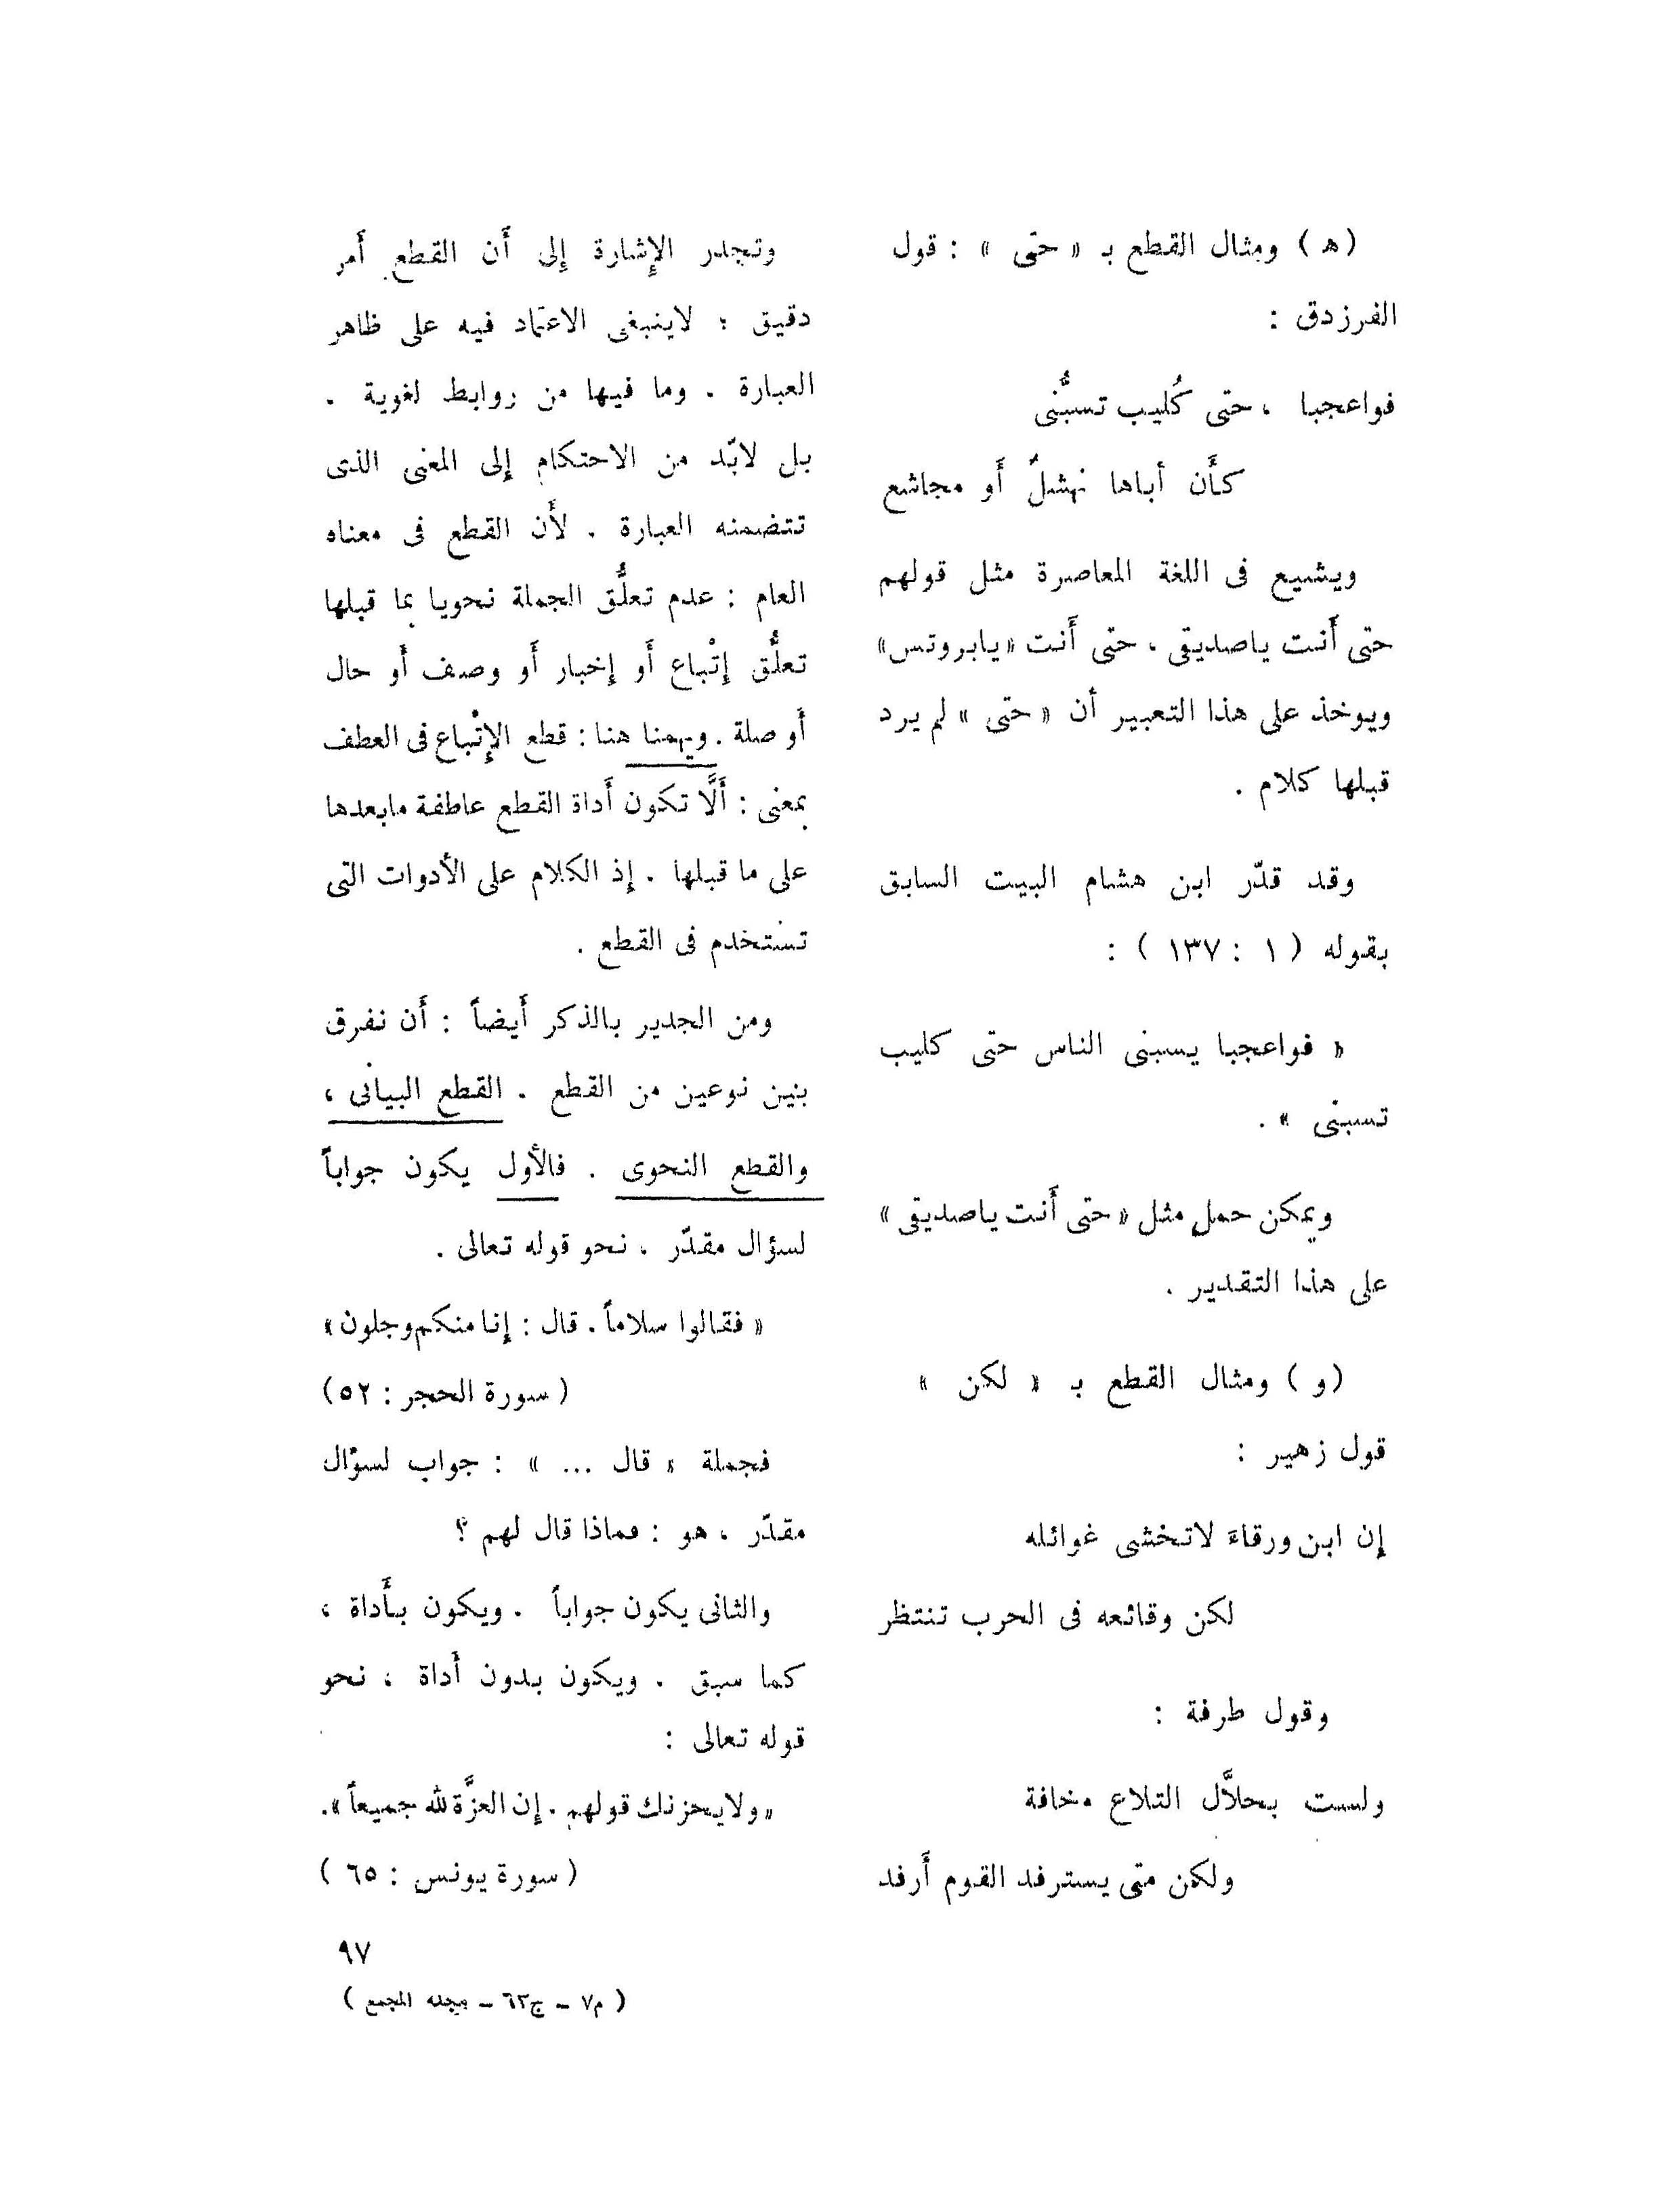 (ه) ومثال القطع بـ « حتى » : قول
الفرزدق :
فواعجبا ، حتى كُليب تسبُّنى
كأَن أباها نهشلٌ أَو مجاشع
ويشيع فى اللغة المعاصرة مثل قولهم
حتى أَنت ياصديقى ، حتى أَنت «يابروتس»
ويوخذ على هذا التعبير أن « حتى » لم يرد
قبلها كلام .
وقد قدّر ابن هشام البيت السابق
بقوله ( ١ : ١٣٧ ) :
« فواعجبا يسبنى الناس حتى كليب
تسبنى » .
ويمكن حمل مثل « حتى أَنت ياصديقى »
على هذا التقدير .
(و) ومثال القطع بـ « لكن »
قول زهير :
إن ابن ورقاءَ لاتخشى غوائله
لكن وقائعه فى الحرب تنتظر
وقول طرفة :
ولست بحلاَّل التلاع مخافة
ولكن متى يسترفد القوم أَرفد
وتجدر الإِشارة إلى أَن القطع أَمر
دقيق ؛ لاينبغى الاعتماد فيه على ظاهر
العبارة . وما فيها من روابط لغوية .
بل لابّد من الاحتكام إلى المعنى الذى
تتضمنه العبارة . لأَن القطع فى معناه
العام : عدم تعلُّق الجملة نحويا بما قبلها
تعلُّق إتْباع أَو إخبار أَو وصف أَو حال
أَو صلة . ويهمنا هنا : قطع الإِتْباع فى العطف
بمعنى : أَلَّا تكون أَداة القطع عاطفة مابعدها
على ما قبلها . إذ الكلام على الأَدوات التى
تستخدم فى القطع .
ومن الجدير بالذكر أَيضاً : أَن نفرق
بنين نوعين من القطع . القطع البيانى ،
والقطع النحوى . فالأَول يكون جواباً
لسؤال مقدّر ، نحو قوله تعالى .
« فقالوا سلاماً . قال : إنا منكم وجلون »
( سورة الحجر : ٥٢)
فجملة « قال ... » : جواب لسؤال
مقدّر ، هو : فماذا قال لهم ؟
والثانى يكون جواباً . ويكون بأَداة ،
كما سبق . ويكون بدون أَداة ، نحو
قوله تعالى :
« ولايحزنك قولهم . إن العزَّة لله جميعاً ».
( سورة يونس : ٦٥ )
٩٧
( م٧ – ج٦٣ – مجلة المجمع )